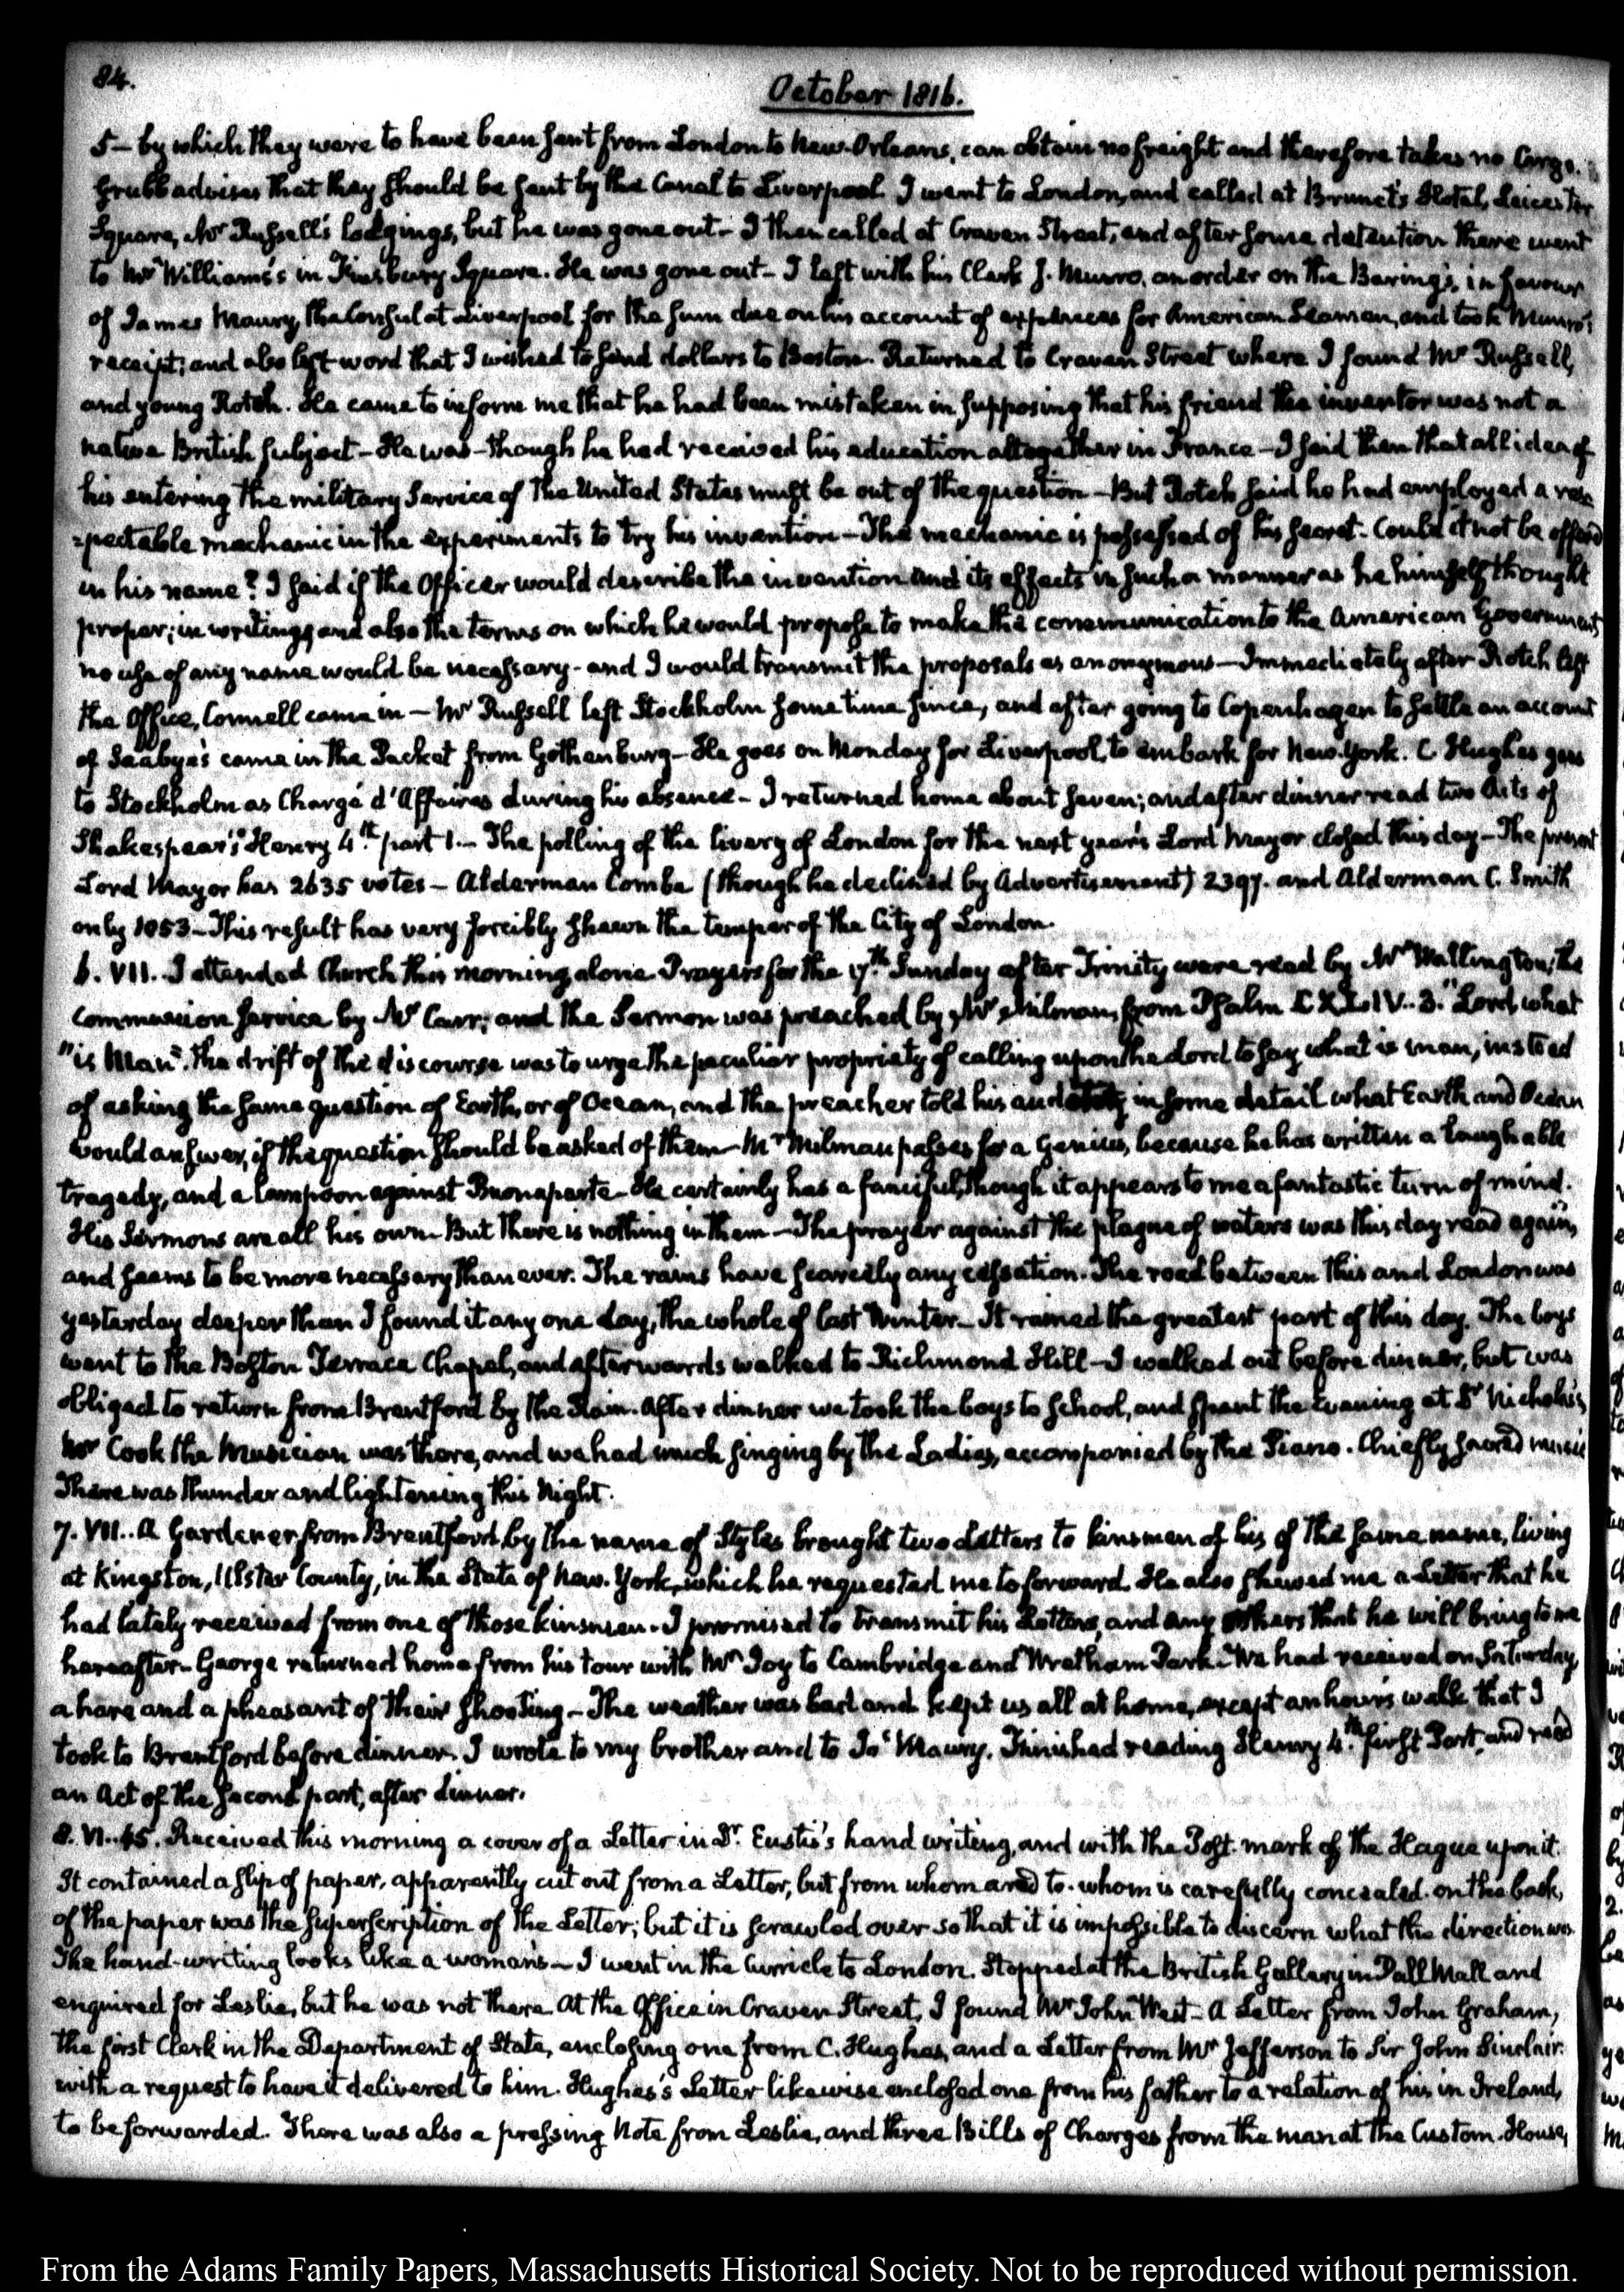 84.
October 1816.
5 — by which they were to have been sent from London to New-Orleans, can obtain no freight and therefore takes no Cargo.
Grubb advises that they should be sent by the Canal to Liverpool. I went to London, and called at Brunet's Hotel, Leicester
Square, Mr Russell's lodgings, but he was gone out — I then called at Craven Street, and after some detention there went
to Mr Williams's in Finsbury Square. He was gone out — I left with his Clerk J. Munro, an order on the Baring's, in favour
of James Maury, the Consul at Liverpool for the sum due on his account of expences for American Seamen, and took Munro's
receipt; and also left word that I wished to send dollars to Boston. Returned to Craven Street where I found Mr Russell,
and young Rotch. He came to inform me that he had been mistaken in supposing that his friend the inventor was not a
native British subject — He was — though he had received his education altogether in France — I said then that all idea of
his entering the military service of the United States must be out of the question — But Rotch said he had employed a res-
=pectable mechanic in the experiments to try his invention — The mechanic is possessed of his secret. Could it not be offered
in his name? I said if the Officer would describe the invention and its effects in such a manner as he himself thought
proper; in writing, and also the terms on which he would propose to make the communication to the American Government
no use of any name would be necessary — and I would transmit the proposals as anonymous — Immediately after Rotch left
the Office, Connell came in — Mr Russell left Stockholm some time since, and after going to Copenhagen to settle an account
of Saabye's came in the Packet from Gothenburg — He goes on Monday for Liverpool, to embark for New-York. C. Hughes goes
to Stockholm as Chargé d'Affaires during his absence — I returned home about seven; and after dinner read two Acts of
Shakespear's Henry 4.th part 1. — The polling of the livery of London for the next year's Lord Mayor closed this day — The present
Lord Mayor has 2635 votes — Alderman Combe (though he declined by Advertisement) 2397. and Alderman C. Smith
only 1053 — This result has very forcibly shewn the temper of the City of London.
6. VII. I attended Church this morning, alone. Prayers for the 17.th Sunday after Trinity were read by Mr Wallington; the
Communion service by Mr Carr; and the Sermon was preached by Mr Milman, from Psalm CXLIV. 3. "Lord, what
"is Man". The drift of the discourse was to urge the peculiar propriety of calling upon the Lord to say what is man, instead
of asking the same question of Earth, or of Ocean, and the preacher told his in some detail what Earth and Ocean
would answer, if the question should be asked of them — Mr Milman passes for a Genius, because he has written a laughable
tragedy, and a lampoon against Buonaparte — He certainly has a fanciful, though it appears to me a fantastic turn of mind.
His Sermons are all his own — But there is nothing in them — The prayer against the plague of waters was this day read again,
and seems to be more necessary than ever. The rains have scarcely any cessation. The road between this and London was
yesterday deeper than I found it any one day, the whole of last Winter — It rained the greatest part of this day. The boys
went to the Boston Terrace Chapel, and afterwards walked to Richmond Hill — I walked out before dinner, but was
obliged to return from Brentford by the Rain. After dinner we took the boys to School, and spent the Evening at Dr Nicholas's,
Mr Cook the Musician was there, and we had much singing by the Ladies, accompanied by the Piano. Chiefly sacred music
There was thunder and lightening this Night.
7. VII. A Gardener from Brentford by the name of Styles brought two Letters to kinsmen of his of the same name, living
at Kingston, Ulster County, in the State of New-York, which he requested me to forward. He also shewed me a Letter that he
had lately received from one of those kinsmen. I promised to transmit his Letters, and any others that he will bring to me
hereafter — George returned home from his tour with Mr Joy to Cambridge and Wretham Park — We had received on Saturday,
a hare and a pheasant of their shooting — The weather was bad and kept us all at home, except an hour's walk that I
took to Brentford before dinner. I wrote to my brother and to Js Maury. Finished reading Henry 4.th first Part, and read
an Act of the second part, after dinner.
8. VI. 45. Received this morning a cover of a Letter in Dr. Eustis's hand writing, and with the Post mark of the Hague upon it.
It contained a slip of paper, apparently cut out from a Letter, but from whom and to whom is carefully concealed. on the back,
of the paper was the superscription of the Letter; but it is scrawled over so that it is impossible to discern what the direction was.
The hand-writing looks like a woman's — I went in the Curricle to London. Stopped at the British Gallery in Pall Mall and
enquired for Leslie, but he was not there. At the Office in Craven Street, I found Mr John West — A Letter from John Graham,
the first Clerk in the Department of State, enclosing one from C. Hughes, and a Letter from Mr Jefferson to Sir John Sinclair
with a request to have it delivered to him. Hughes's Letter likewise enclosed one from his father to a relation of his in Ireland,
to be forwarded. There was also a pressing Note from Leslie, and three Bills of Charges from the man at the Custom-House,
From the Adams Family Papers, Massachusetts Historical Society. Not to be reproduced without permission.